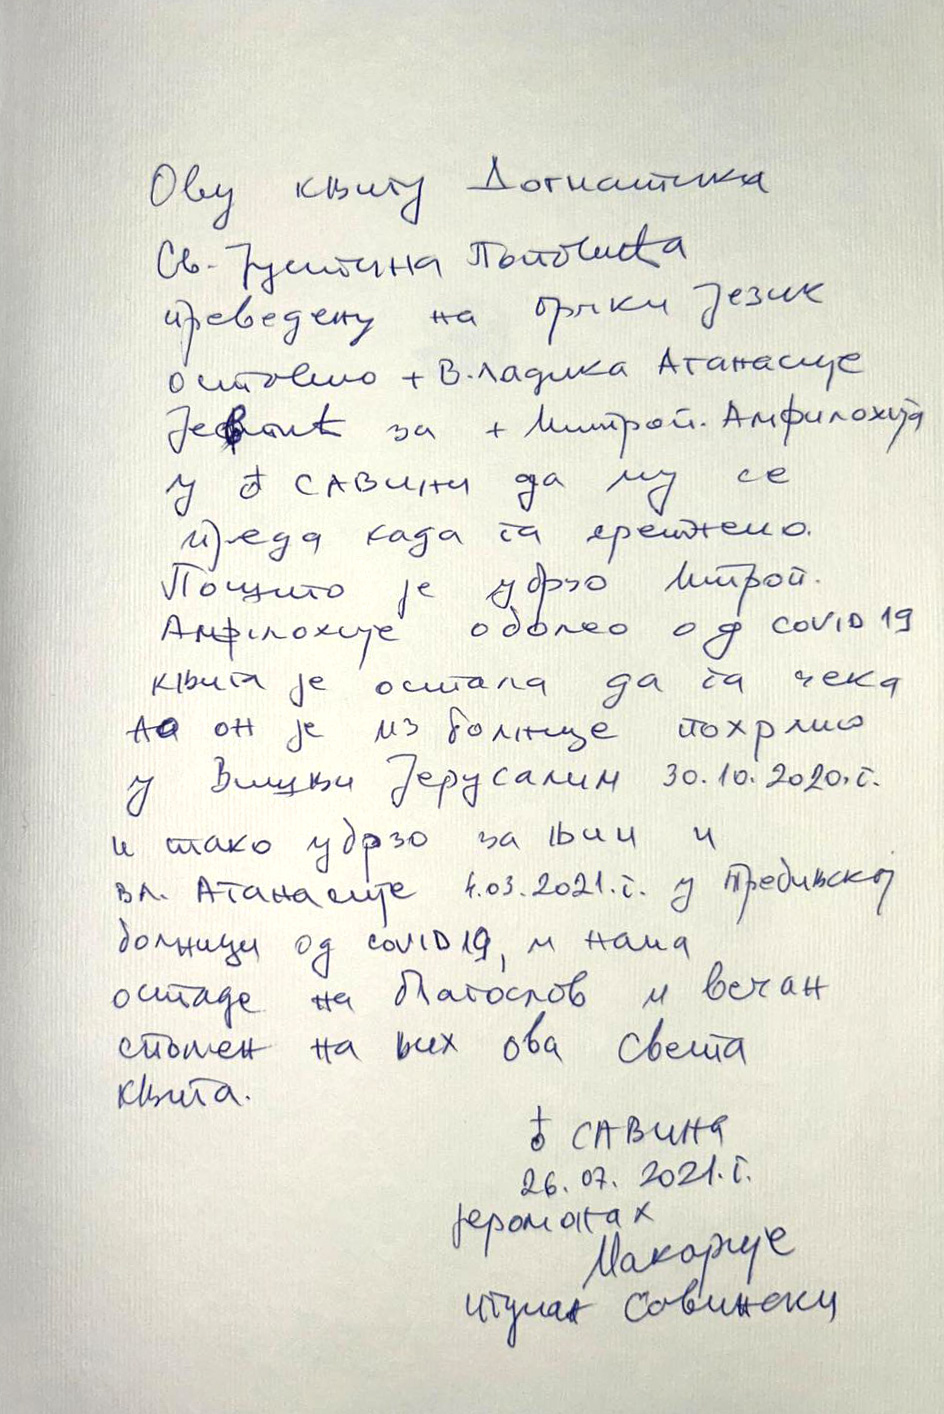 Ову књигу Догматика
Св. Јустина Поповића
преведену на грчки језик
оставио + Владика Атанасије
Јевтић за + Митроп. Амфилохија
у ♁ САВИНИ да му се
преда када га сретнемо.
Пошто је убрзо Митроп.
Амфилохије оболео од COVID 19
књига је остала да га чека
но он је из болнице похрлио
у Вишњи Јерусалим 30.10.2020.г.
и тако убрзо за њим и
вл. Атанасије 4.03.2021.г. у требињској
болници од COVID 19, и нама
остаде на благослов и вечан
спомен на њих ова света
књига.
♁ САВИНА
26.07.2021.г.
јеромонах
Макарије
игуман Савински